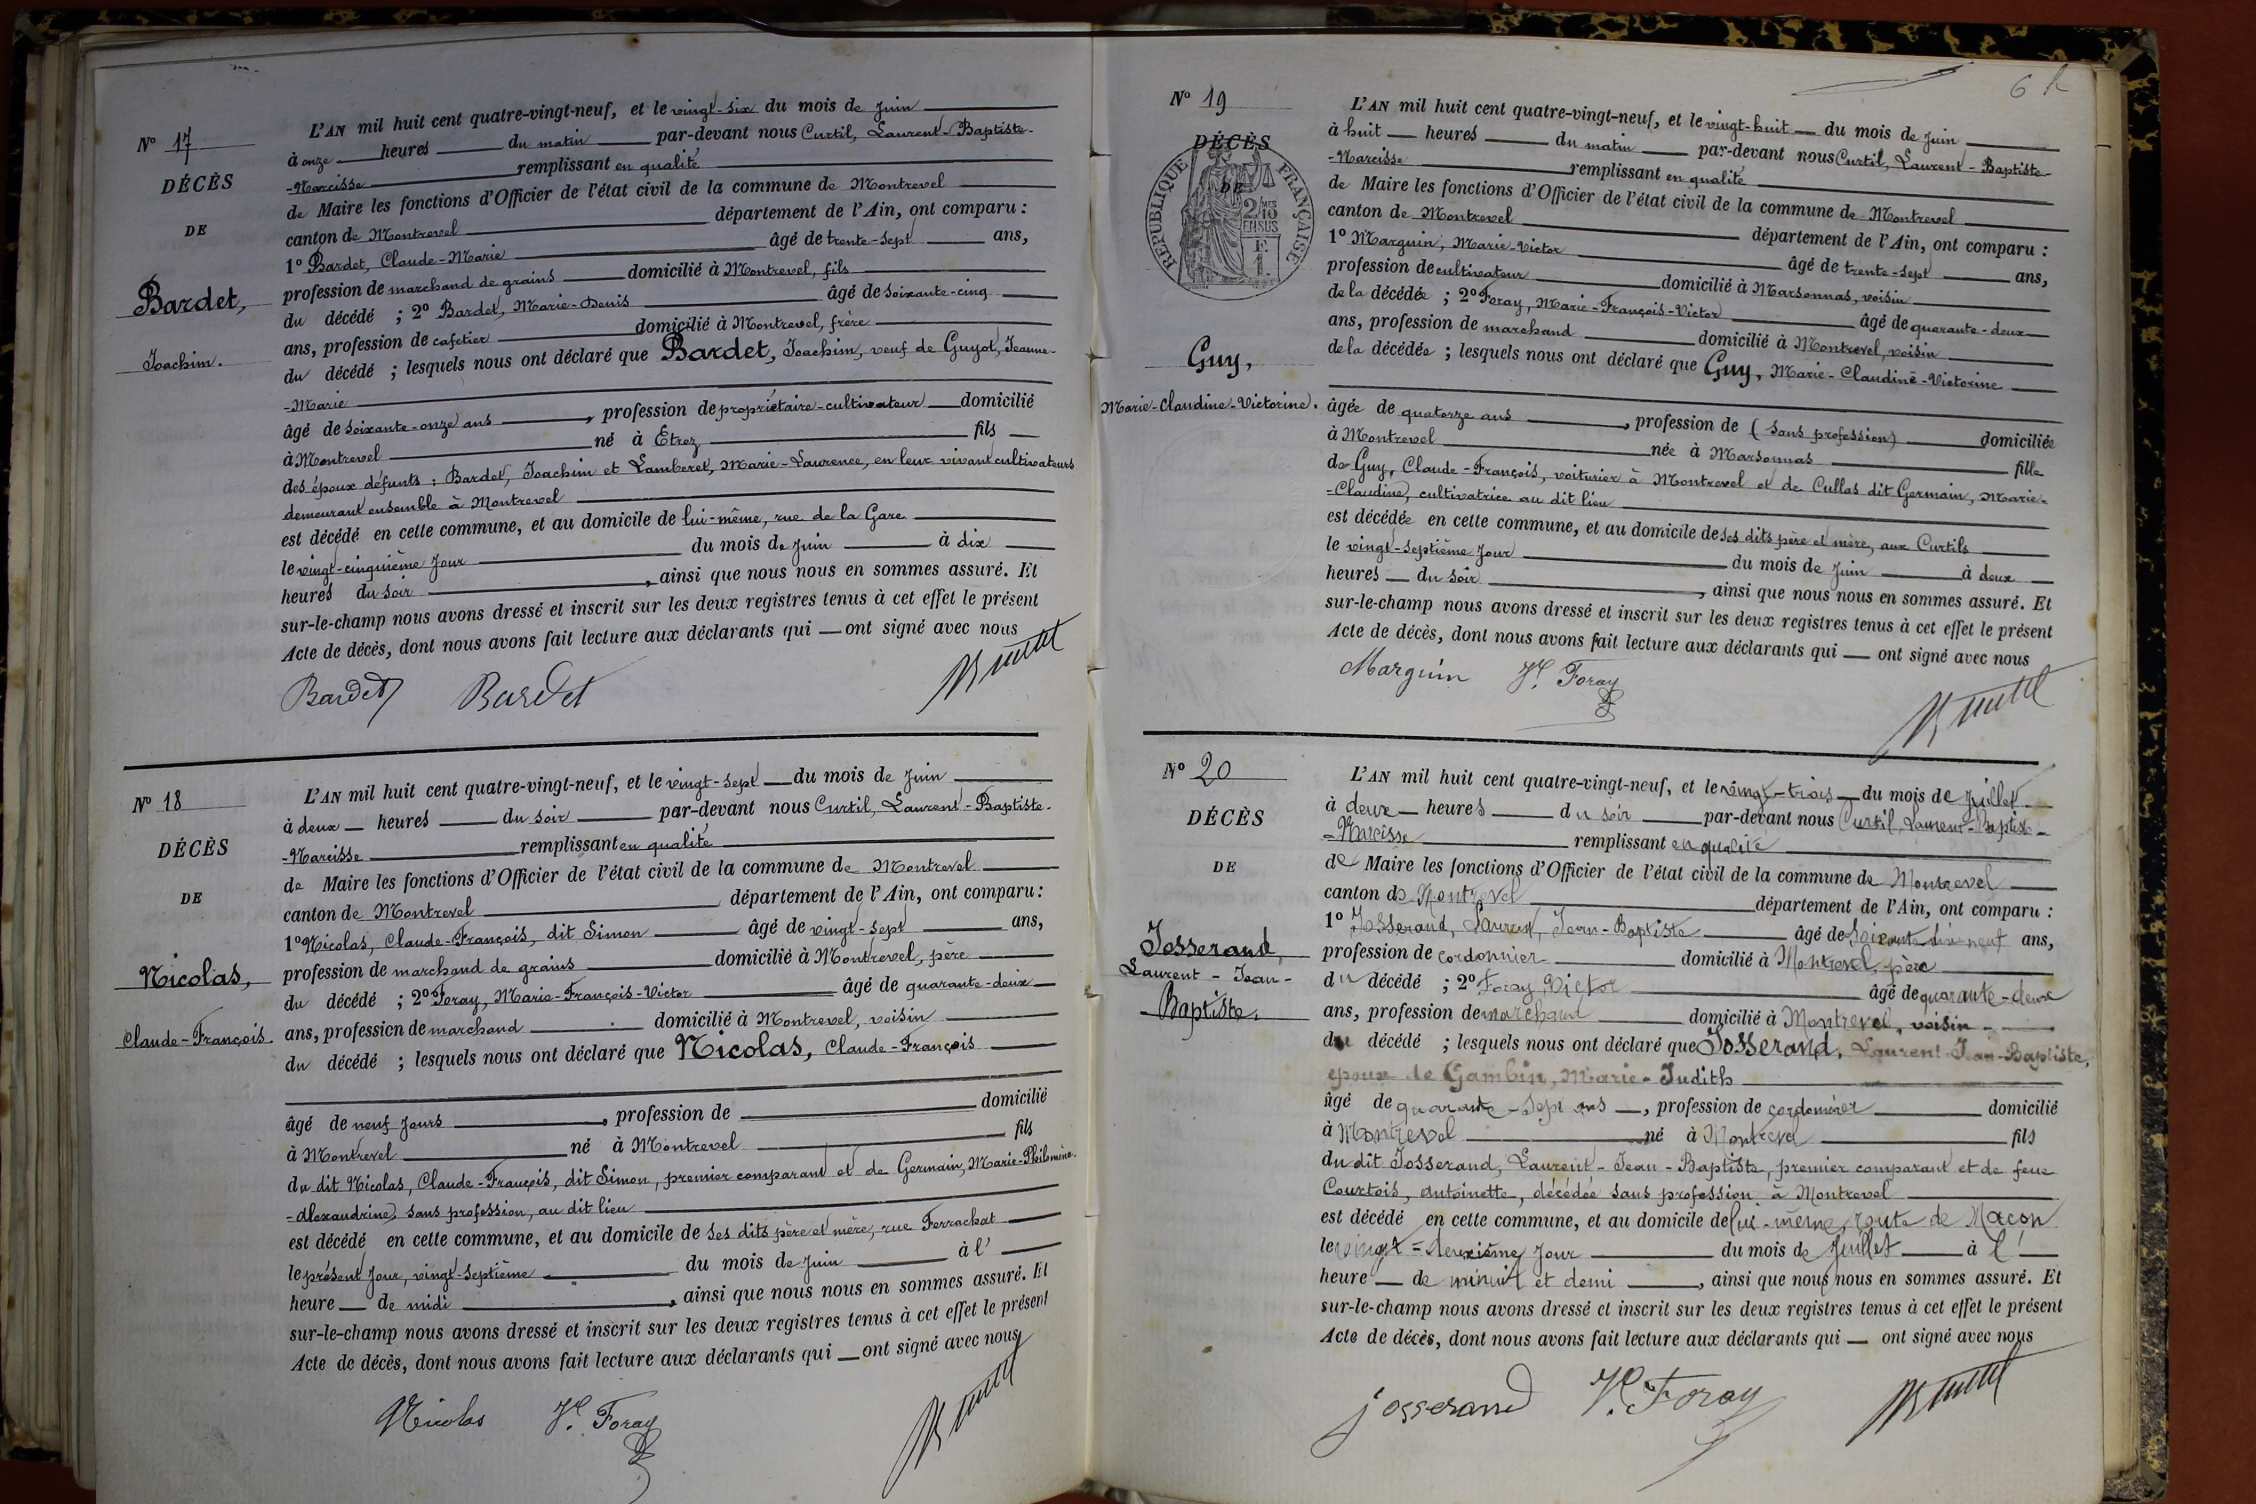 N° 17
DÉCÈS
DE
Bardet,
Joachim.
L'AN mil huit cent quatre-vingt-neuf, et le vingt-six du mois de Juin
à onze heures du matin par-devant nous Curtil, Laurent-Baptiste-
-Narcisse remplissant en qualité
de Maire les fonctions d'Officier de l'état civil de la commune de Montrevel
canton de Montrevel département de l'Ain, ont comparu :
1° Bardet, Claude-Marie âgé de trente-sept ans,
profession de marchand de grains domicilié à Montrevel, fils
du décédé ; 2° Bardet, Marie-Denis âgé de soixante-cinq
ans, profession de cafetier domicilié à Montrevel, frère
du décédé ; lesquels nous ont déclaré que Bardet, Joachim, veuf de Guyot, Jeanne-
-Marie
âgé de soixante-onze ans, profession de propriétaire-cultivateur domicilié
à Montrevel né à Etrez fils
des époux défunts : Bardet, Joachim et Lamberet, Marie-Laurence, en leur vivant cultivateurs
demeurant ensemble à Montrevel
est décédé en cette commune, et au domicile de lui-même, rue de la Gare
le vingt-cinquième jour du mois de Juin à dix
heures du soir, ainsi que nous nous en sommes assuré. Et
sur-le-champ nous avons dressé et inscrit sur les deux registres tenus à cet effet le présent
Acte de décès, dont nous avons fait lecture aux déclarants qui ont signé avec nous
Bardet Bardet
N° 18
DÉCÈS
DE
Nicolas,
Claude-François.
L'AN mil huit cent quatre-vingt-neuf, et le vingt-sept du mois de Juin
à deux heures du soir par-devant nous Curtil, Laurent-Baptiste-
-Narcisse remplissant en qualité
de Maire les fonctions d'Officier de l'état civil de la commune de Montrevel
canton de Montrevel département de l'Ain, ont comparu :
1° Nicolas, Claude-François, dit Simon âgé de vingt-sept ans,
profession de marchand de grains domicilié à Montrevel, père
du décédé ; 2° Foray, Marie-François-Victor âgé de quarante-deux
ans, profession de marchand domicilié à Montrevel, voisin
du décédé ; lesquels nous ont déclaré que Nicolas, Claude-François
âgé de neuf jours, profession de domicilié
à Montrevel né à Montrevel fils
du dit Nicolas, Claude-François, dit Simon, premier comparant et de Germain, Marie-Philomène-
-Alexandrine, sans profession, au dit lieu
est décédé en cette commune, et au domicile de ses dits père et mère, rue Ferrachat
le présent jour, vingt-septième du mois de Juin à l'
heure de midi, ainsi que nous nous en sommes assuré. Et
sur-le-champ nous avons dressé et inscrit sur les deux registres tenus à cet effet le présent
Acte de décès, dont nous avons fait lecture aux déclarants qui ont signé avec nous
Nicolas Vr. Foray
N° 19
DÉCÈS
DE
RÉPUBLIQUE FRANÇAISE
2/10 EN SUS
Guy,
Marie-Claudine-Victorine.
L'AN mil huit cent quatre-vingt-neuf, et le vingt-huit du mois de Juin
à huit heures du matin par-devant nous Curtil, Laurent-Baptiste-
-Narcisse remplissant en qualité
de Maire les fonctions d'Officier de l'état civil de la commune de Montrevel
canton de Montrevel département de l'Ain, ont comparu :
1° Marguin, Marie-Victor âgé de trente-sept ans,
profession de cultivateur domicilié à Marsonnas, voisin
de la décédée ; 2° Foray, Marie-François-Victor âgé de quarante-deux
ans, profession de marchand domicilié à Montrevel, voisin
de la décédée ; lesquels nous ont déclaré que Guy, Marie-Claudine-Victorine
âgée de quatorze ans, profession de (sans profession) domiciliée
à Montrevel née à Marsonnas fille
de Guy, Claude-François, voiturier à Montrevel et de Cullas dit Germain, Marie-
-Claudine, cultivatrice au dit lieu
est décédée en cette commune, et au domicile de ses dits père et mère, aux Curtils
le vingt-septième jour du mois de Juin à deux
heures du soir, ainsi que nous nous en sommes assuré. Et
sur-le-champ nous avons dressé et inscrit sur les deux registres tenus à cet effet le présent
Acte de décès, dont nous avons fait lecture aux déclarants qui ont signé avec nous
Marguin Vr. Foray
N° 20
DÉCÈS
DE
Josserand,
Laurent-Jean-
Baptiste.
L'AN mil huit cent quatre-vingt-neuf, et le vingt-trois du mois de Juillet
à deux heures du soir par-devant nous Curtil, Laurent-Baptiste-
-Narcisse remplissant en qualité
de Maire les fonctions d'Officier de l'état civil de la commune de Montrevel
canton de Montrevel département de l'Ain, ont comparu :
1° Josserand, Laurent, Jean-Baptiste âgé de soixante dix-neuf ans,
profession de cordonnier domicilié à Montrevel, père
du décédé ; 2° Foray, Victor âgé de quarante-deux
ans, profession de marchand domicilié à Montrevel, voisin
du décédé ; lesquels nous ont déclaré que Josserand, Laurent-Jean-Baptiste,
époux de Gambin, Marie-Judith
âgé de quarante-sept ans, profession de cordonnier domicilié
à Montrevel né à Montrevel fils
du dit Josserand, Laurent-Jean-Baptiste, premier comparant et de feue
Courtois, Antoinette, décédée sans profession à Montrevel
est décédé en cette commune, et au domicile de lui-même, route de Macon
le vingt=deuxième jour du mois de Juillet à l'
heure de minuit et demi, ainsi que nous nous en sommes assuré. Et
sur-le-champ nous avons dressé et inscrit sur les deux registres tenus à cet effet le présent
Acte de décès, dont nous avons fait lecture aux déclarants qui ont signé avec nous
josserand Vr. Foray